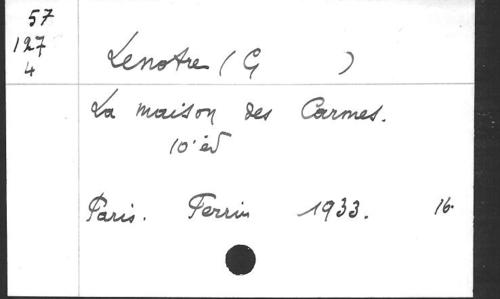 57
127
4
Lenotre (G )
La maison des Carmes.
10' éd
Paris. Perrin 1933. 16.